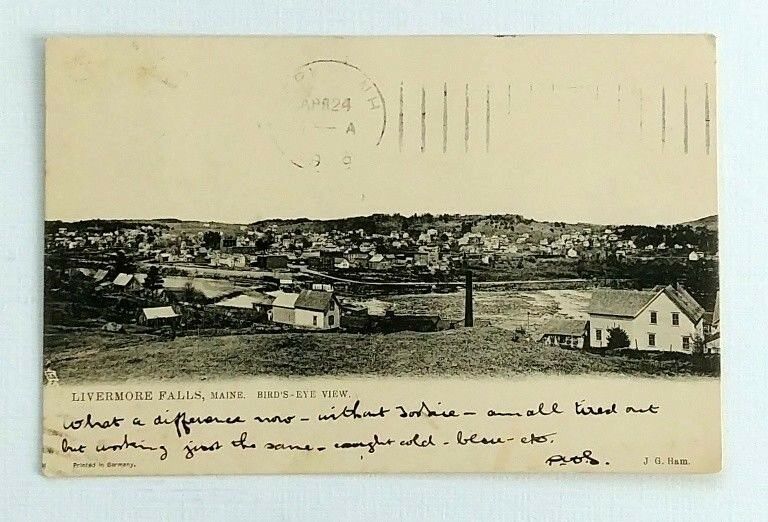 N H
APR 24
A
LIVERMORE FALLS, MAINE. BIRD'S-EYE VIEW.
What a difference now - without - am all tired out
but working just the same - caught cold - - etc.
Printed in Germany.
J G. Ham.